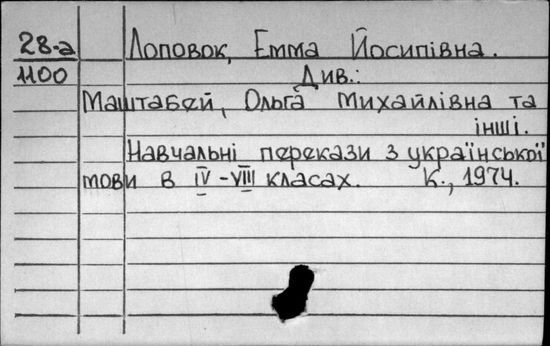 28-а Лоповок, Емма Йосипівна.
1100 Див.:
Маштабей, Ольга Михайлівна та
інші.
Навчальні перекази з української
мови в IV-VIII класах. К., 1974.